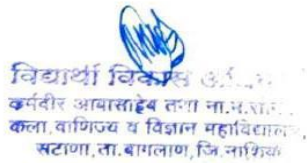 विद्यार्थी विकास
कर्मवीर आबासाहेब तथा ना.म.
कला, वाणिज्य व विज्ञान महाविद्यालय,
सटाणा, ता. बागलाण, जि. नाशिक